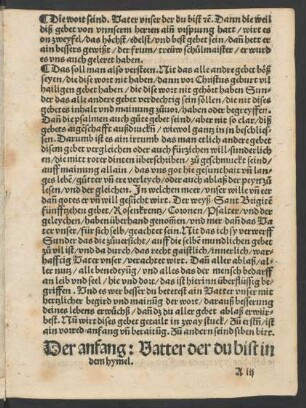 ¶ Die wort seind. Vater vnser der du bist ꝛc. Dann die weil
diß gebet von vnnserm herren auß vrspung hatt, wirt es
on zweyfel, das höchst, edelst, vnd best gebet sein, dañ hett er
ain bessers gewißt, der frum, treüw schůlmaister, er wurd
es vns auch geleret haben.
¶ Das soll man also versteen. Nit das alle andre gebet böß
seyen, die dise wort nit haben, dann vor Christus geburt vil
hailigen gebet haben, die dise wort nit gehört haben Sun
der das alle andre gebet verdechtig sein söllen, die nit dises
gebetes inhalt vnd mainung zůuor, haben oder begreyffen.
Dañ die psalmen auch gůte gebet seind, aber nit so clar, diß
gebets aigeschafft außdruckñ, wiewol gantz in in beschlies-
sen. Darumb ist es ain irrumb das man etlich andre gebet
disem gebet vergleichen oder auch fürziehen will, sunderlich
en, die mitt roter dinten überschriben, zů geschmuckt seind,
auff mainung allain, das vns got hie gesuntheit vñ lan-
ges lebẽ, gůter vñ ere verleych, oder auch ablaß der peyn zů
lesen, vnd der gleichen. In welchen meer, vnser wille vñ ere
dañ gotes er vñ will gesůcht wirt. Der weyß Sant Brigitẽ
fünffzehen gebet, Rosenkrentz, Coronen, Psalter, vnd der
geleycher, haben überhand genommen, vnd mer dañ das Va
ter vnser, für sich selb, geachtet sein. Nit das ich sy verwerff
Sunder das die zůuersicht, auff die selbẽ mundlichen gebet
zů vil ist, vnd da durch, das recht gaistlich, innerlich, war-
hafftig Vater vnser, verachtet wirt. Dañ aller ablaß, al-
ler nutz, alle benedeyũg, vnd alles das der mensch bedarff
an leib vnd seel, hie vnd dort, das ist hierinn überflüssig be-
griffen. Vnd es wer besser du betetest ain Vater vnser mit
hertzlicher begird vnd mainũg der wort, darauß besserung
deines lebens erwůchß, dañ dz du aller gebet ablaß erwür-
best. Nũ wirt dises gebet getailt in zway stuck, Zů erstñ, ist
ain vorred anfang vñ beraitũg. Zů andern seind siben bitt.
Der anfang: Vatter der du bist in
dem hymel.
A iij